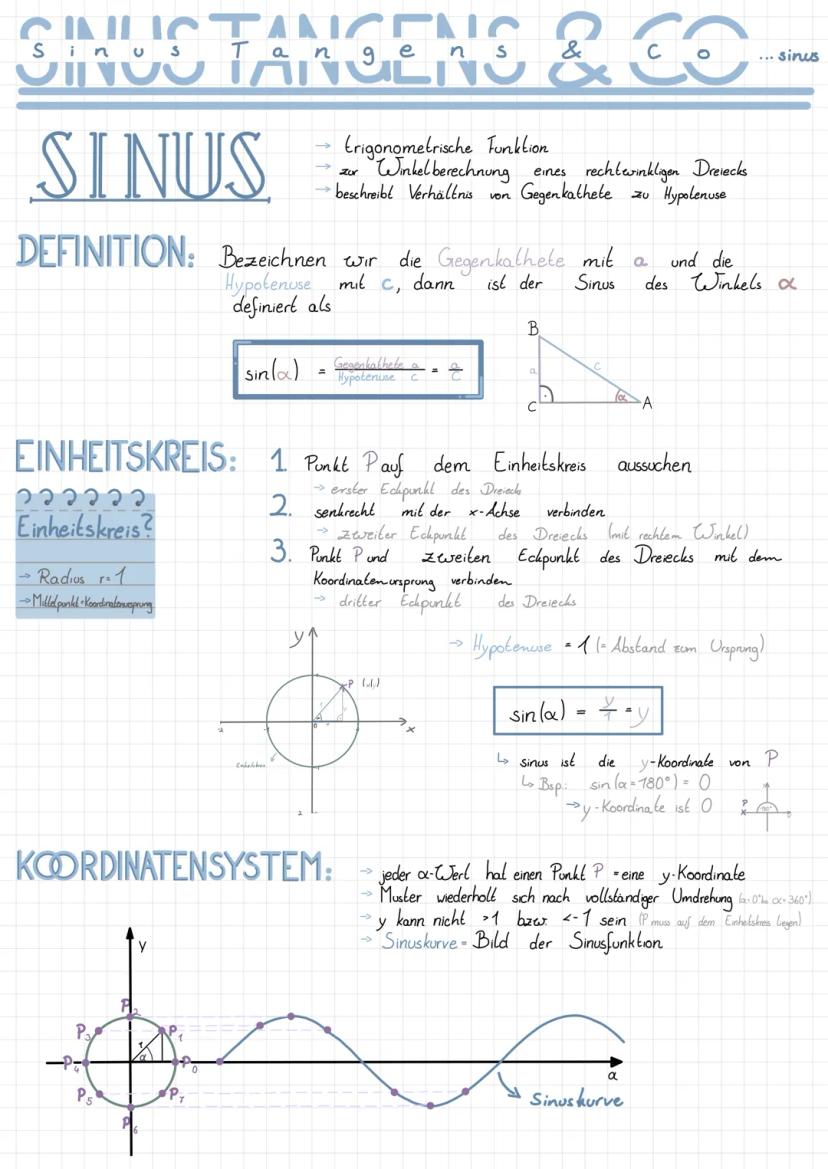 SINUS TANGENS & CO
Sinus Tangens & Co ... sinus
SINUS
→ trigonometrische Funktion
→ zur Winkelberechnung eines rechtwinkligen Dreiecks
→ beschreibt Verhältnis von Gegenkathete zu Hypotenuse
DEFINITION:
Bezeichnen wir die Gegenkathete mit a und die
Hypotenuse mit c, dann ist der Sinus des Winkels α
definiert als
sin(α) = Gegenkathete a / Hypotenuse c = a/c
B
a c
α
C A
EINHEITSKREIS:
1. Punkt P auf dem Einheitskreis aussuchen
→ erster Eckpunkt des Dreiecks
2. senkrecht mit der x-Achse verbinden
→ zweiter Eckpunkt des Dreiecks (mit rechtem Winkel)
3. Punkt P und zweiten Eckpunkt des Dreiecks mit dem
Koordinatenursprung verbinden
→ dritter Eckpunkt des Dreiecks
Einheitskreis?
→ Radius r=1
→ Mittelpunkt=Koordinatenursprung
y
P
x
→ Hypotenuse = 1 (= Abstand zum Ursprung)
sin(α) = y/1 = y
↳ sinus ist die y-Koordinate von P
↳ Bsp.: sin(α=180°) = 0
→ y-Koordinate ist 0
P
180°
KOORDINATENSYSTEM:
→ jeder α-Wert hat einen Punkt P = eine y-Koordinate
→ Muster wiederholt sich nach vollständiger Umdrehung (α=0° bis α=360°)
→ y kann nicht >1 bzw. <-1 sein (P muss auf dem Einheitskreis liegen)
→ Sinuskurve = Bild der Sinusfunktion
y
P2
P3 P1
1
α
P4 P0
α
P5 P7
P6
Sinuskurve